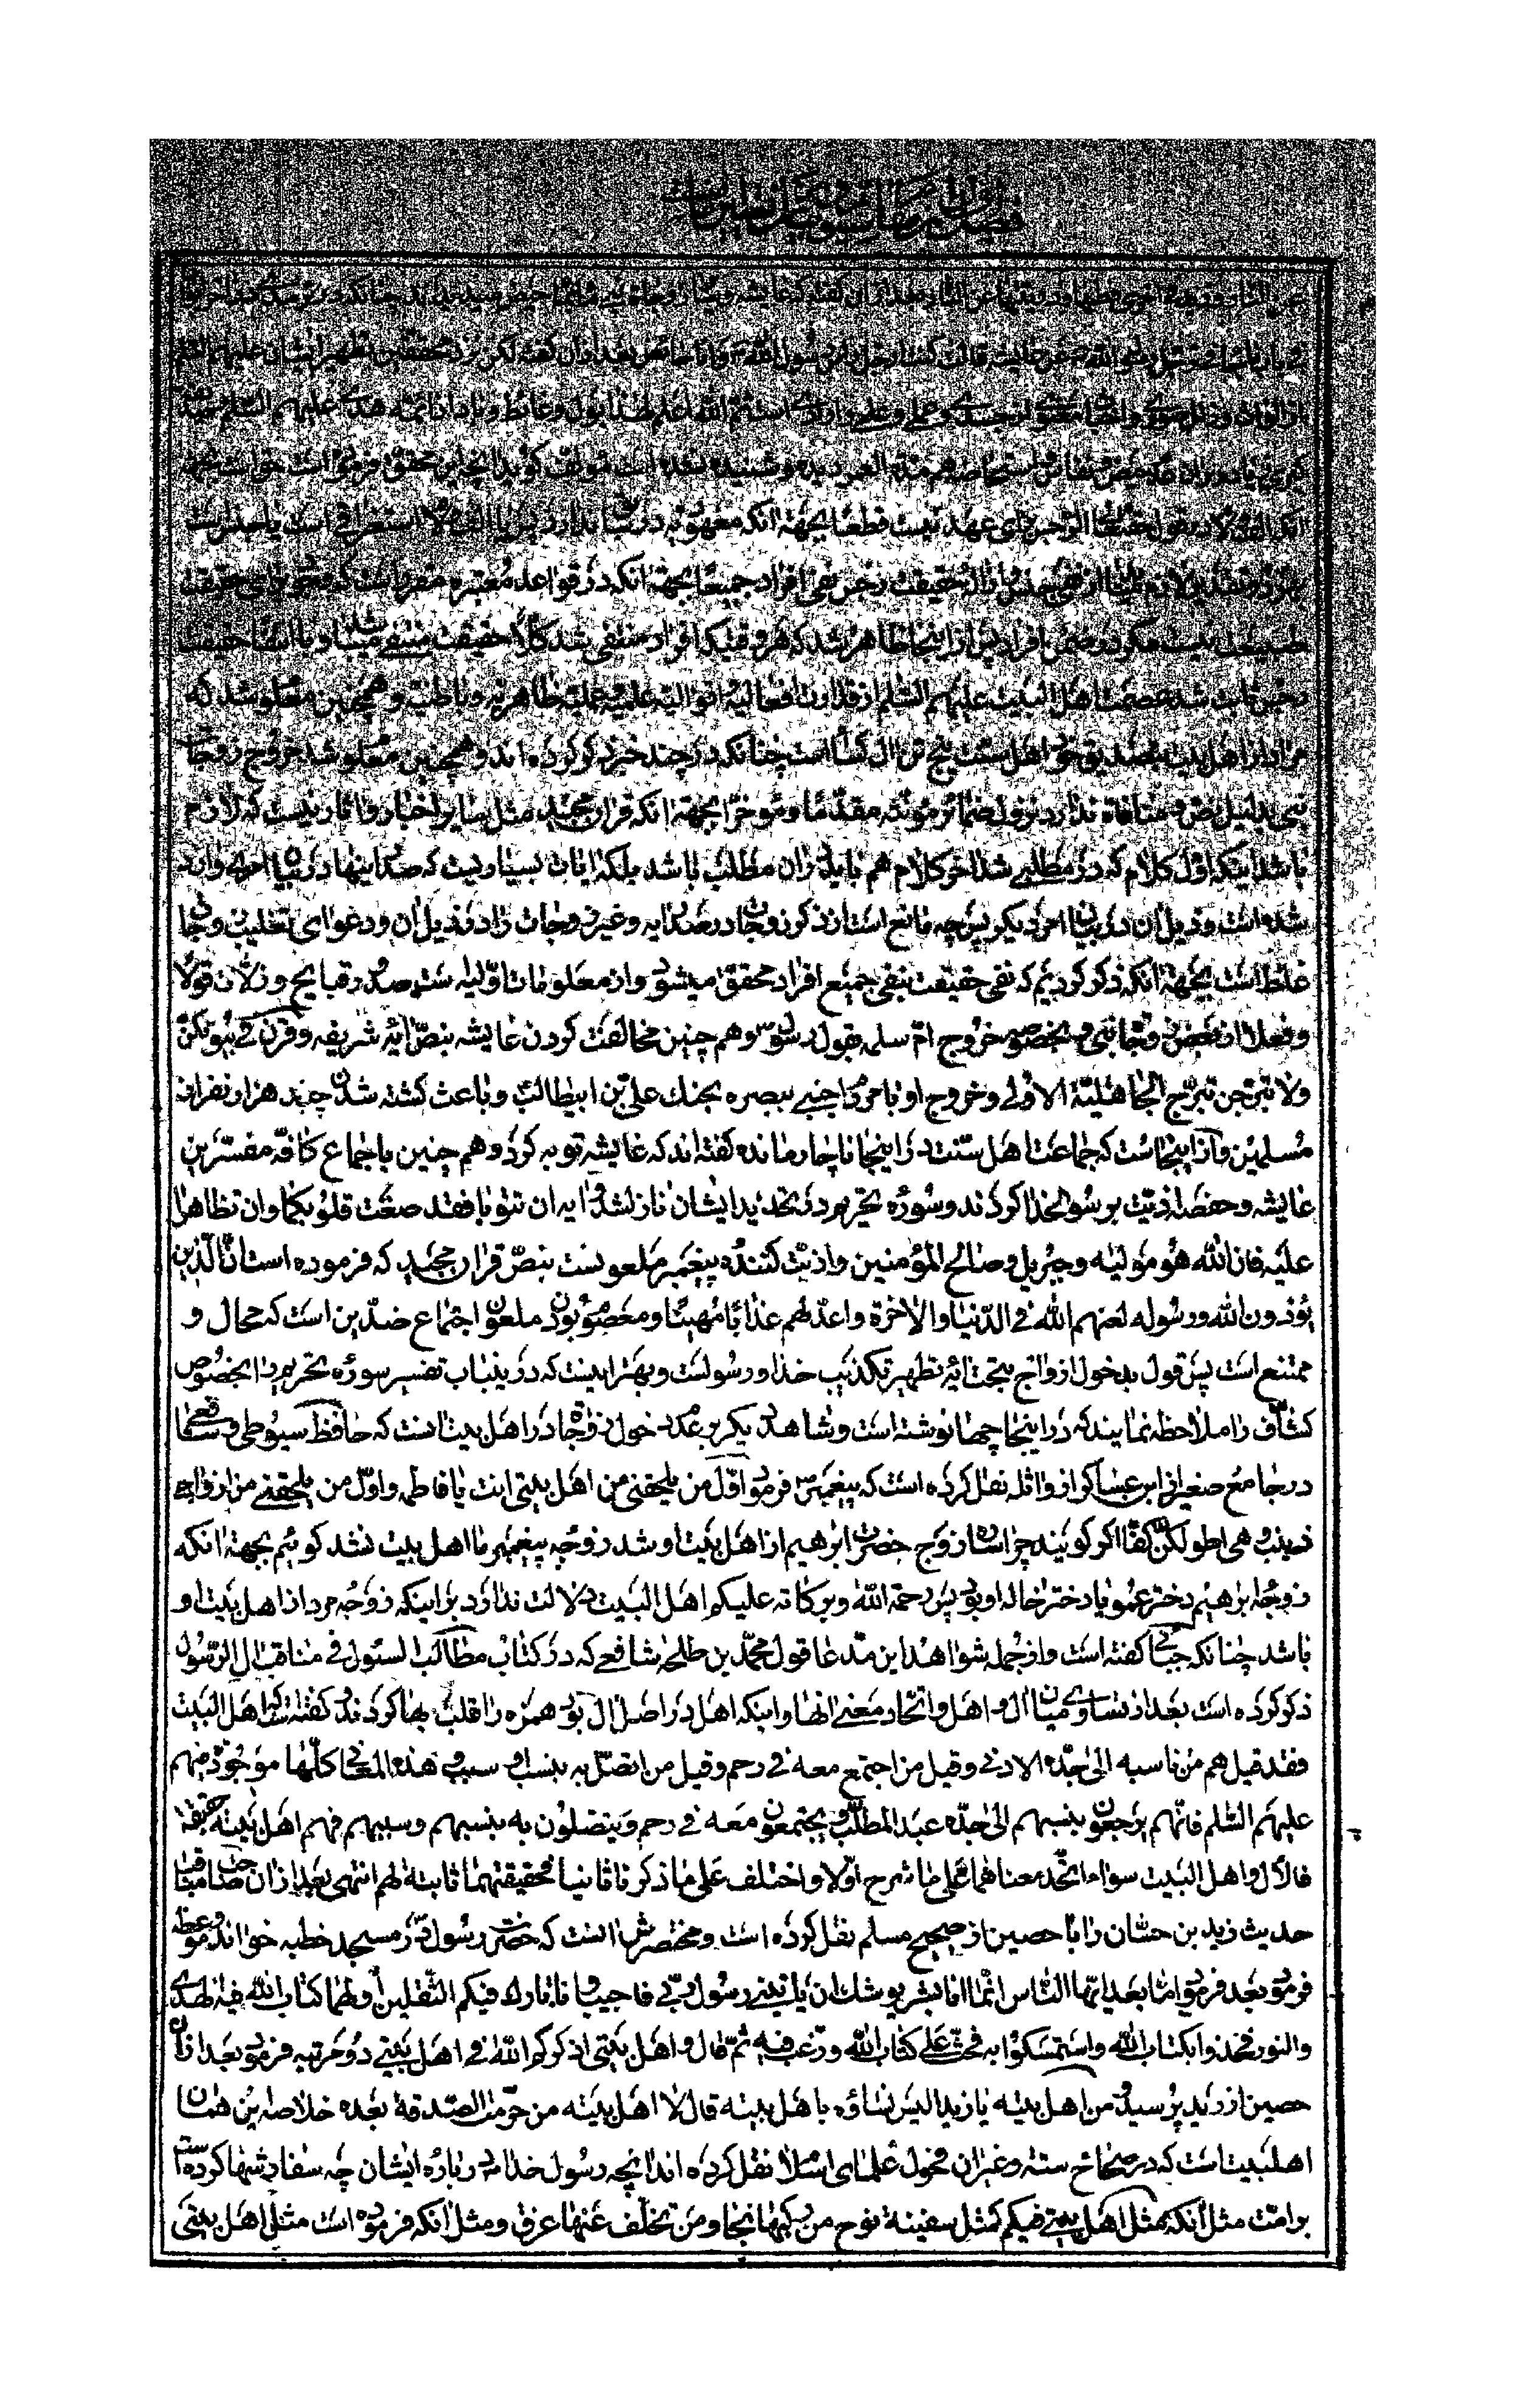 فصل اول از مقاله سیم در بیان
باب قالت کنت ارجل راس رسول الله ص وانا حائض بعد از ان کفته لکن نزد محققین تطهیر ایشان علیهم السلم
وحلی وعلی واولادی است ثم الله اعلم لهذا بول وغائط وباد از ائمه هدی علیهم السلم
هم ندیده وشنیده نشده است مؤلف کوید انچه این محقق فرموده است
الرجس برای عهد نیست قطعا بجهة انکه معهودیه در بیان ندارد پس یا الف ولام استغراقی است یا جنس است
حقیقت رجس نفی افراد جمیعا بجهة انکه در قواعد معتبره مقرر است که
پس از اینجا ظاهر شد که هر وقتیکه افراد منتفی شد کلا حقیقت منتفی میشود وبانتفاء حقیقت
رجس ثابت شد عصمت اهل البیت علیهم السلم از قذاورات افعالیه اقوالیه علمیه عملیه ظاهریه وباطنیه وهمچنین معلوم شد که
مراد از اهل بیت بتصدیق خود اهل سنت پنج تن ال کسا است چنانکه در چند خبر ذکر کرده اند وهمچنین معلوم شد خروج زوجات
نبی بدلیل نص ومنافاة ندارد نزول ضمائر مؤنثه مقدما ومؤخرا بجهة انکه قران مجید مثل سایر اخبار واثار نیست که لازم
باشد اینکه اول کلام که در مطلبی شد اخر کلام هم باید در ان مطلب باشد بلکه ایات بسیاریست که صدر اینها در بیان امری وارد
شده است وذیل ان در بیان امر دیکر پس چه مانع است از ذکر زوجات در صدر ایه وغیر زوجات را در ذیل ان ودعوای تغلیب وجا
غلط است بجهة انکه ذکر کردیم که نفی حقیقت بنفی جمیع افراد محقق میشود واز معلومات اولیه ست صدور قبایح وزلات قولا
وفعلا از بعض زوجات نبی ص بخصوص خروج ام سلمه بقول رسول ص وهم چنین مخالفت کردن عایشه بنص ایه شریفه وقرن فی بیوتکن
ولا تبرجن تبرج الجاهلیة الاولی وخروج او با مرد اجنبی ببصره بجنك علی بن ابیطالب وباعث کشته شدن چند هزار نفر از
مسلمین واز اینجاست که جماعت اهل سنت در اینجا ناچار مانده کفته اند که عایشه توبه کرد وهم چنین باجماع کافه مفسرین
عایشه وحفصه اذیت برسول خدا کردند وسوره تحریم در تهدید ایشان نازل شد ایه ان تتوبا فقد صغت قلوبکما وان تظاهرا
علیه فان الله هو مولیه وجبریل وصالح المؤمنین واذیت کننده پیغمبر ملعونست بنص قران مجید که فرموده است ان الذین
یؤذون الله ورسوله لعنهم الله فی الدنیا والاخرة واعد لهم عذابا مهینا ومعصوم بودن ملعون اجتماع ضدین است که محال و
ممتنع است پس قول بدخول ازواج بتحت ایه تطهیر تکذیب خدا ورسولست وبهتر اینست که در ینباب تفسیر سوره تحریم را بخصوص
کشاف را ملاحظه نمایند که در اینجا چها نوشته است وشاهد دیکر بر عدم دخول زوجات در اهل بیت انست که حافظ سیوطی شافعی
در جامع صغیر از ابن عساکر او از واثله نقل کرده است که پیغمبر ص فرمود اول من یلحقنی من اهل بیتی انت یا فاطمه واول من یلحقنی من ازواجی
زینب وهی اطولکن کفا اکر کویند چرا ساره زوج حضرت ابرهیم از اهل بیت او شد زوجه پیغمبر ما اهل بیت نشد کوئیم بجهة انکه
زوجه ابرهیم دختر عمو یا دختر خاله او بود پس رحمة الله وبرکاته علیکم اهل البیت دلالت ندارد بر اینکه زوجه مرد از اهل بیت او
باشد چنانکه جبائی کفته است واز جمله شواهد این مدعا قول محمد بن طلحه شافعی که در کتاب مطالب السئول فی مناقب ال الرسول
ذکر کرده است بعد از تساوی میان ال واهل واتحاد معنی انها واینکه اهل در اصل ال بود همزه را قلب بها کردند کفته است اهل البیت
فقد قیل هم من ناسبه الی جده الادنی وقیل من اجتمع معه فی رحم وقیل من اتصل به بنسب او سبب وهذه المعانی کلها موجودة فیهم
علیهم السلم فانهم یرجعون بنسبهم الی جده عبد المطلب ویجتمعون معه فی رحم ویتصلون به بنسبهم وسببهم فهم اهل بیته حقیقة
فالال واهل البیت سواء اتحد معناهما علی ما شرح اولا واختلف علی ما ذکر ثانیا فحقیقتهما ثابتة لهم انتهی بعد از ان صاحب مناقب
حدیث زید بن حسان را با حصین از صحیح مسلم نقل کرده است ومختصرش انست که حضرت رسول ص در مسجد خطبه خواند وموعظه
فرمود بعد فرمود اما بعد ایها الناس انما انا بشر یوشك ان یاتینی رسول ربی فاجیب وانا تارك فیکم الثقلین اولهما کتاب الله فیه الهدی
والنور فخذوا بکتاب الله واستمسکوا به فحث علی کتاب الله ورغب فیه ثم قال واهل بیتی اذکرکم الله فی اهل بیتی دو مرتبه فرمود بعد از ان
حصین از زید پرسید من اهل بیته یا زید الیس نساؤه با هل بیته قال لا اهل بیته من حرمت الصدقة بعده خلاصه این همان
اهلبیت است که در صحاح سته وغیر ان فحول علمای اسلام نقل کرده اند انچه رسول خدا ص در باره ایشان چه سفارشها کرده است
بر امت مثل انکه مثل اهل بیتی فیکم کمثل سفینة نوح من رکبها نجا ومن تخلف عنها غرق ومثل انکه فرموده است مثل اهل بیتی